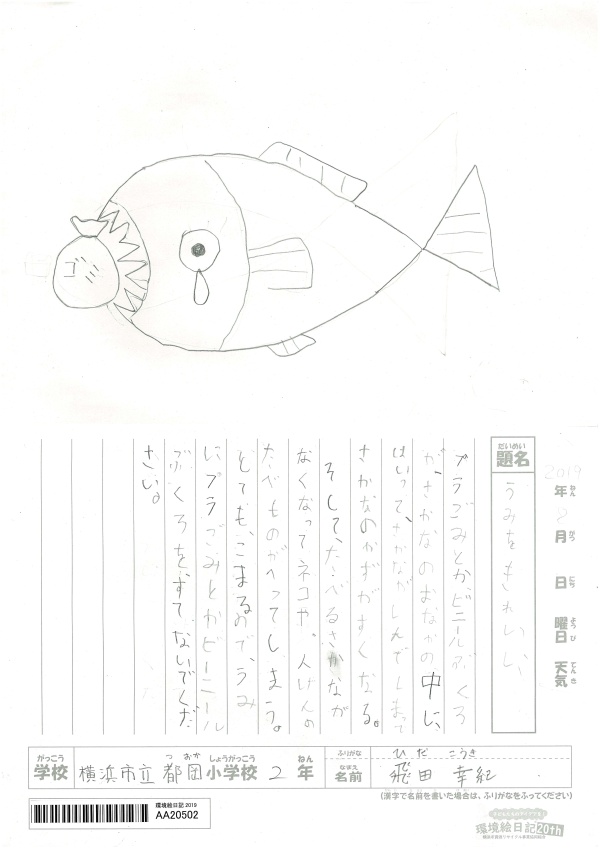 ゴミ
2019
年 ねん
8
月 がつ
日 にち
曜日 ようび
天気 てんき
だいめい
題名
うみをきれいに
プラごみとか、ビニールぶくろ
が、さかなのおなかの中に、
はいって、さかながしんでしまって
さかなのかずがすくなくなる。
そして、たべるさかなが
なくなってネコや、人げんの
たべものがへってしまう。
とても、こまるので、うみ
にプラごみとかビーニール
ぶくろをすてないでくだ
さい。
がっこう つおか しょうがっこう ねん
学校 横浜市立 都岡 小学校 2 年
ふりがな ひだ こうき
なまえ
名前 飛田 幸紀
(漢字で名前を書いた場合は、ふりがなをふってください)
環境絵日記 2019
AA20502
環境絵日記 20th